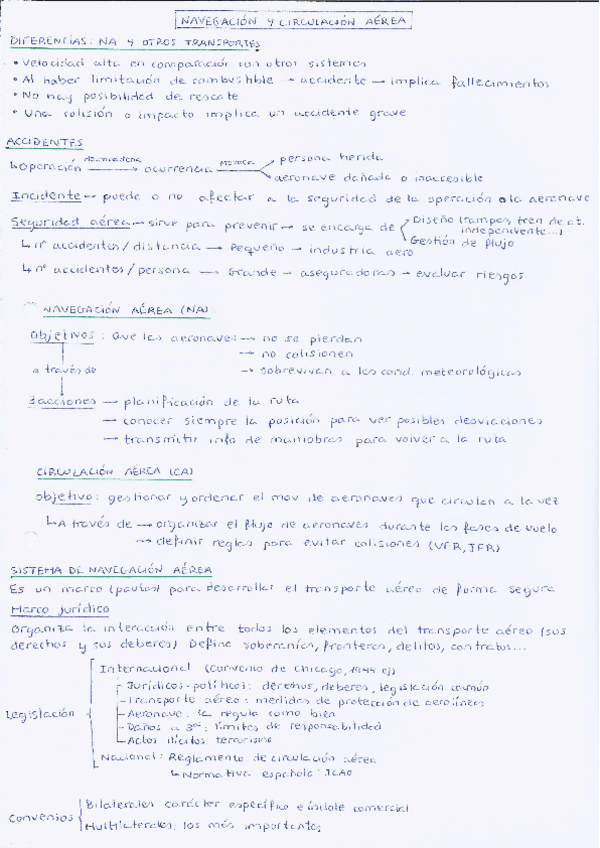 NAVEGACIÓN Y CIRCULACIÓN AÉREA
DIFERENCIAS: NA Y OTROS TRANSPORTES
• Velocidad alta en comparación con otros sistemas
• Al haber limitación de combustible → accidente → implica fallecimientos
• No hay posibilidad de rescate
• Una colisión o impacto implica un accidente grave
ACCIDENTES
↳ Operación desencadena → ocurrencia provoca → persona herida
→ aeronave dañada o inaccesible
Incidente → puede o no afectar a la seguridad de la operación o la aeronave
Seguridad aérea → sirve para prevenir → se encarga de Diseño (rampas, tren de at.
independiente...)
Gestión de flujo
↳ nº accidentes / distancia → Pequeño → industria aero
↳ nº accidentes / persona → Grande → aseguradoras → evaluar riesgos
NAVEGACIÓN AÉREA (NA)
Objetivos: Que las aeronaves → no se pierdan
→ no colisionen
→ sobrevivan a las cond. meteorológicas
a través de
3 acciones → planificación de la ruta
→ conocer siempre la posición para ver posibles desviaciones
→ transmitir info de maniobras para volver a la ruta
CIRCULACIÓN AÉREA (CA)
Objetivo: gestionar y ordenar el mov. de aeronaves que circulan a la vez
↳ A través de → organizar el flujo de aeronaves durante las fases de vuelo
→ definir reglas para evitar colisiones (VFR, IFR)
SISTEMA DE NAVEGACIÓN AÉREA
Es un marco (pautas) para desarrollar el transporte aéreo de forma segura
Marco jurídico
Organiza la interacción entre todos los elementos del transporte aéreo (sus
derechos y sus deberes) Define soberanías, fronteras, delitos, contratos...
Legislación
Internacional (Convenio de Chicago, 1944 ej)
Jurídicos-políticos: derechos, deberes, legislación común
Transporte aéreo: medidas de protección de aerolíneas
Aeronave: la regula como bien
Daños a 3os: límites de responsabilidad
Actos ilícitos: terrorismo
Nacional: Reglamento de circulación aérea
↳ Normativa española: ICAO
Convenios
Bilaterales carácter específico e índole comercial
Multilaterales: los más importantes